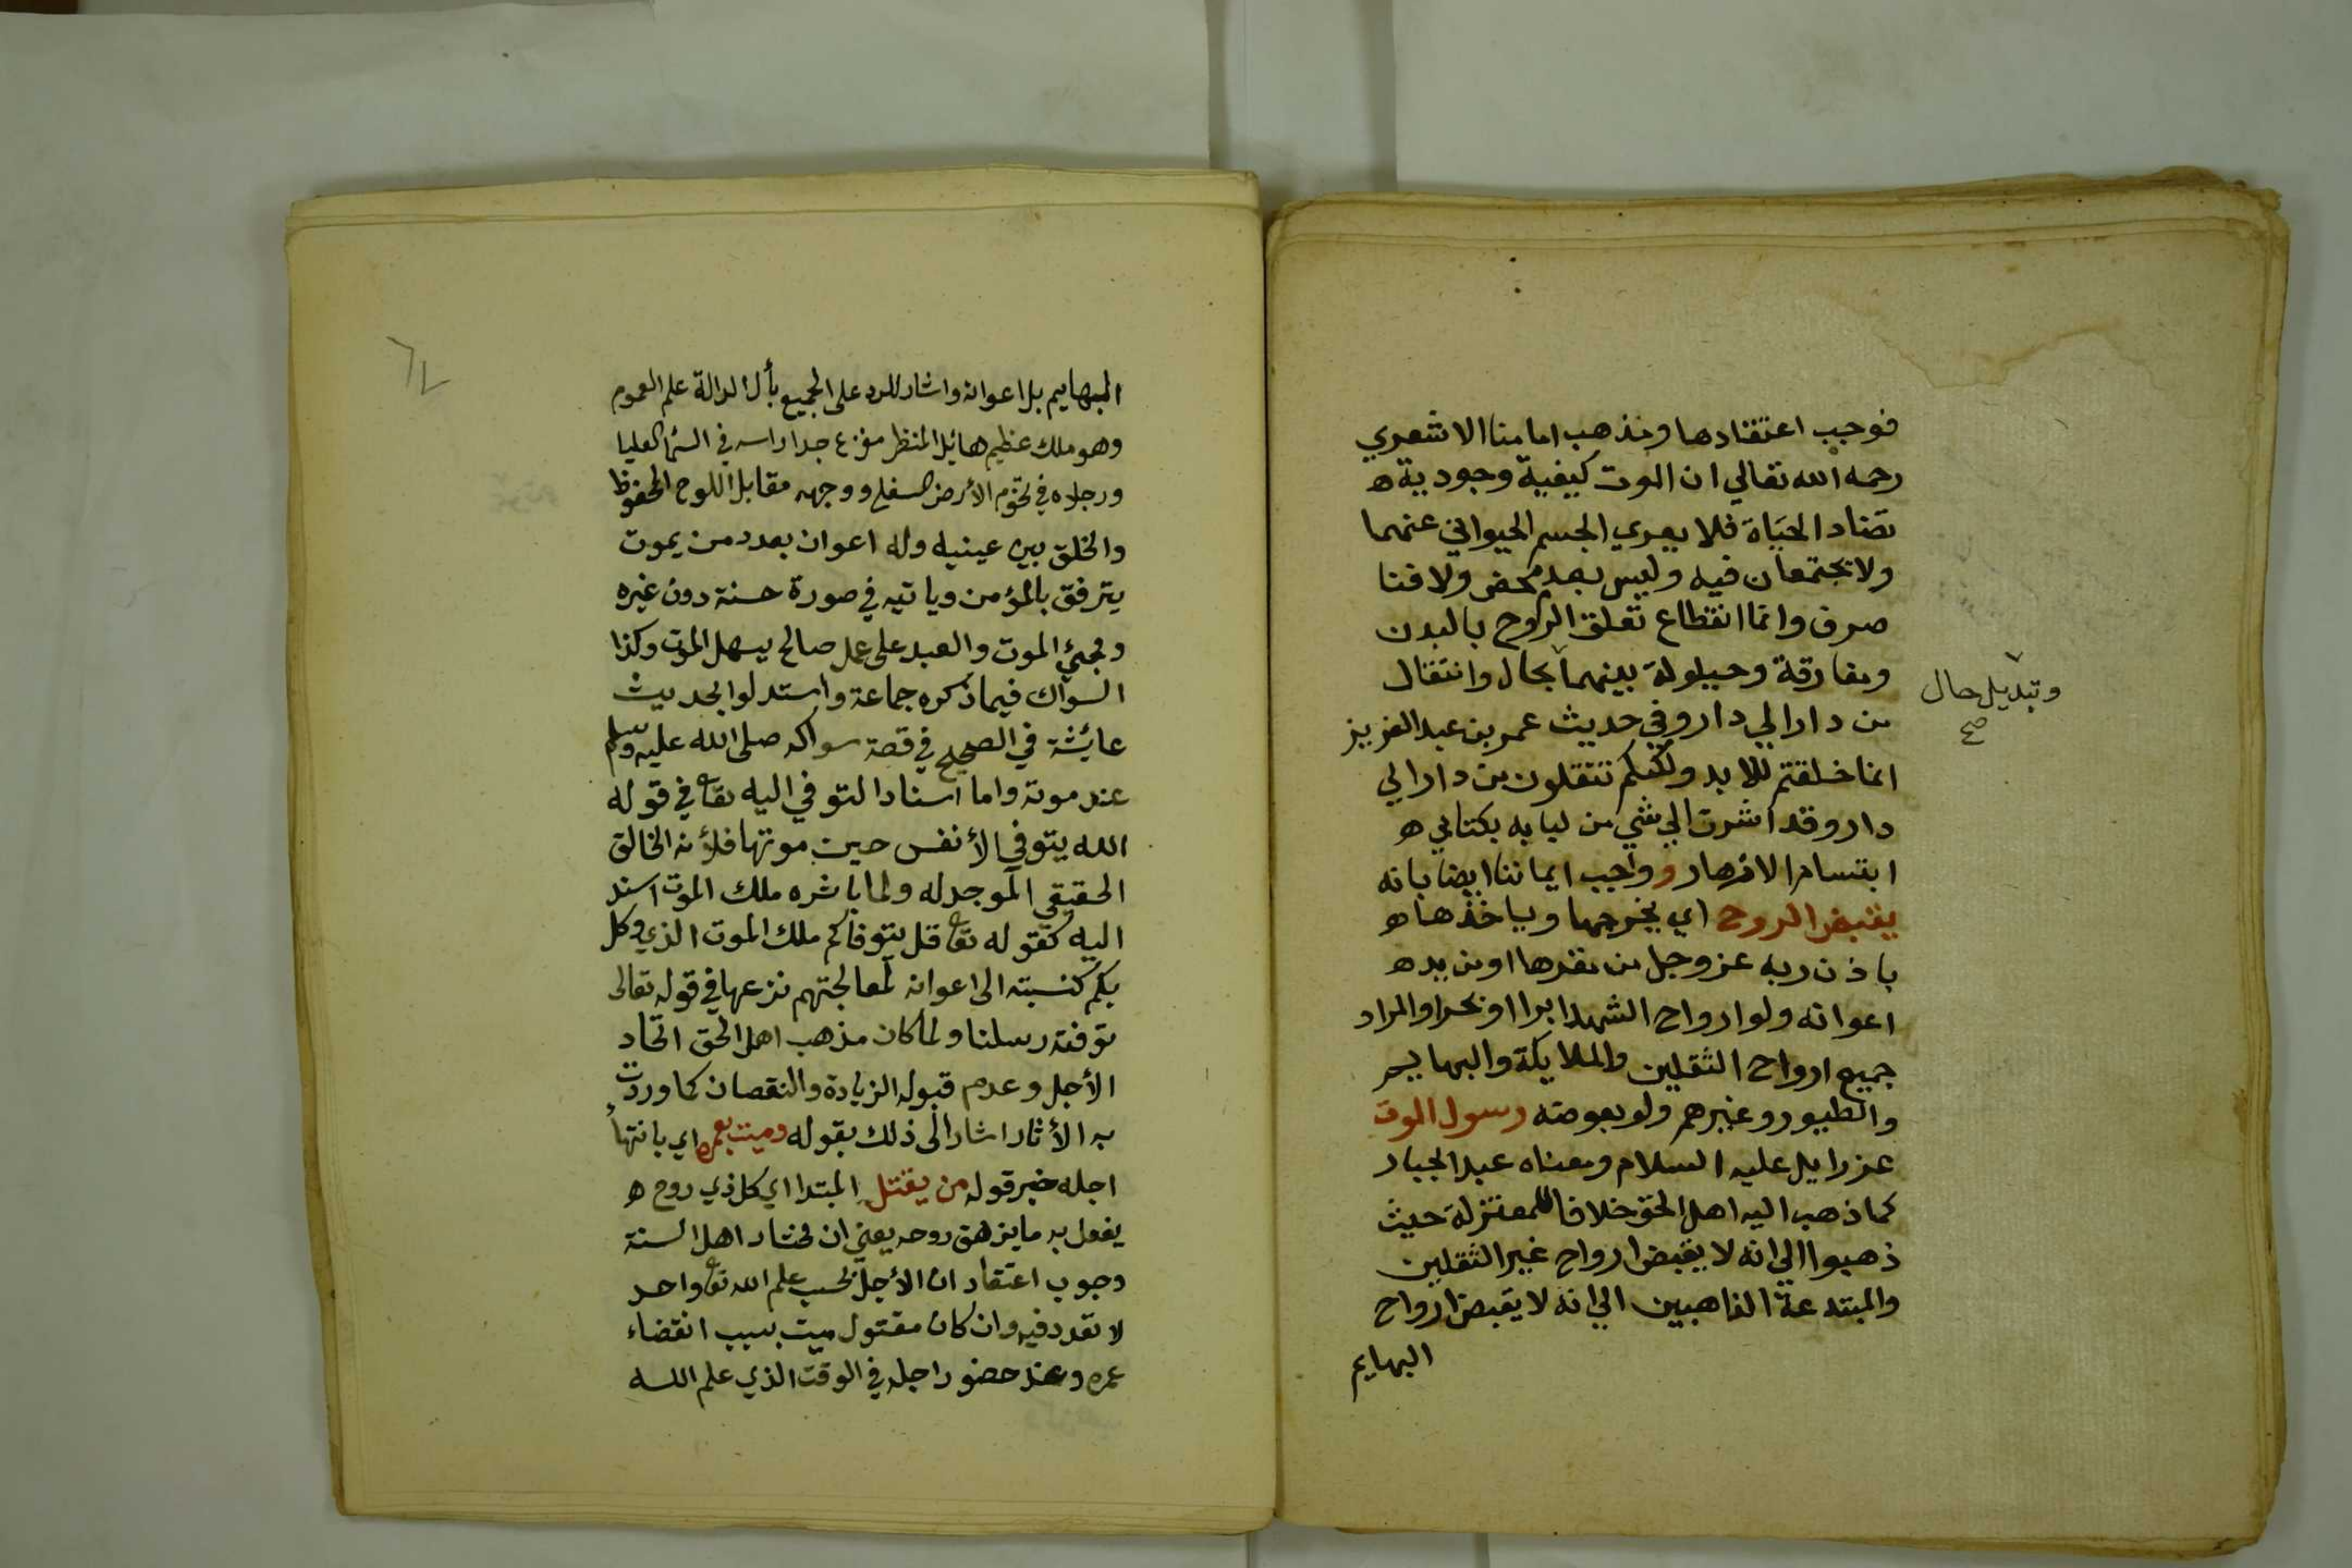 فوجب اعتقادها ومذهب امامنا الاشعري
رحمه الله تعالي ان الموت كيفية وجودية ه
تضاد الحياة فلا يعري الجسم الحيواني عنهما
ولا يجتمعان فيه وليس بعدم محض ولا فنا
صرف وانما انقطاع تعلق الروح بالبدن
ومفارقة وحيلولة بينهما بحال وانتقال
وتبديل حال
صح
من دار الي دار وفي حديث عمر بن عبد العزيز
انما خلقتم للابد ولكنكم تنتقلون من دار الي
دار وقد اشرت الي شي من ليابه بكتابي ه
ابتسام الازهار وواجب ايماننا ايضا بانه
يقبض الروح اي يخرجها وياخذها ه
باذن ربه عز وجل من مقرها او من يد ه
اعوانه ولو ارواح الشهدا برا او بحرا والمراد
جميع ارواح الثقلين والملايكة والبهايم
والطيور وغيرهم ولو بعوضة رسول الموت
عزرايل عليه السلام ومعناه عبد الجبار
كما ذهب اليه اهل الحق خلافا للمعتزلة حيث
ذهبوا الي انه لا يقبض ارواح غير الثقلين
والمبتدعة الذاهبين الي انه لا يقبض ارواح
البهايم
البهايم بل اعوانه واشار للرد على الجميع بأل الدالة علم العموم
وهو ملك عظيم هائل المنظر مفزع جدا راسه في السما العليا
ورجلاه في تخوم الأرض السفلى ووجهه مقابل اللوح المحفوظ
والخلق بين عينيه وله اعوان بعدد من يموت
يترفق بالمؤمن وياتيه في صورة حسنة دون غيره
ومجئ الموت والعبد على عمل صالح يسهل الموت وكذا
السواك فيما ذكره جماعة واستدلوا بحديث
عائشة في الصحيح في قصة سواكه صلى الله عليه وسلم
عند موته واما اسناد التوفي اليه تعا في قوله
الله يتوفى الأنفس حين موتها فلأنه الخالق
الحقيقي الموجد له ولما باشره ملك الموت اسند
اليه كقوله تعا قل يتوفاكم ملك الموت الذي وكل
بكم كنسبته الى اعوانه لمعالجتهم نزعها في قوله تعالى
توفته رسلنا ولما كان مذهب اهل الحق اتحاد
الأجل وعدم قبوله الزيادة والنقصان كما وردت
به الأثار اشار الى ذلك بقوله وميت بعمره اي بانتهاء
اجله خبر قوله من يقتل المبتدا اي كل ذي روح ه
يفعل به ما يزهق روحه يعني ان مختار اهل السنة
وجوب اعتقاد ان الأجل بحسب علم الله تعا واحد
لا تعدد فيه وان كان مقتول ميت بسبب انقضاء
عمره وعند حضور اجله في الوقت الذي علم الله